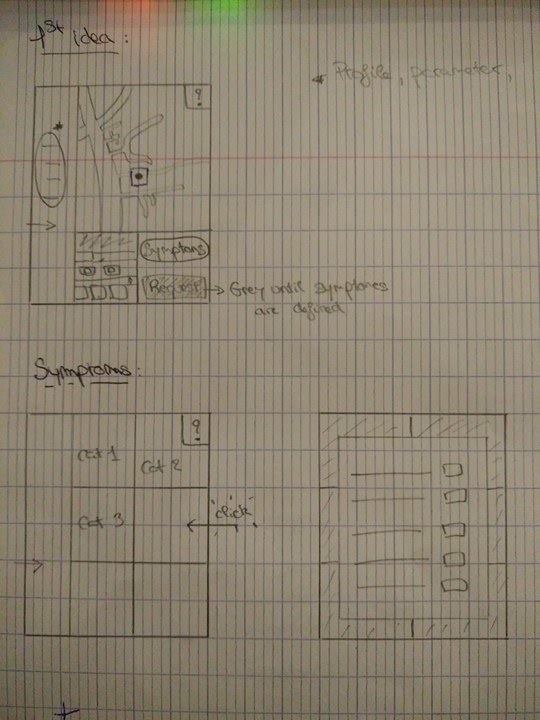 1st idea :
* Profile, parameter,
?
*
Symptoms
Request → Grey until symptomes
are defined
Symptoms :
?
Cat 1
Cat 2
Cat 3
"click"